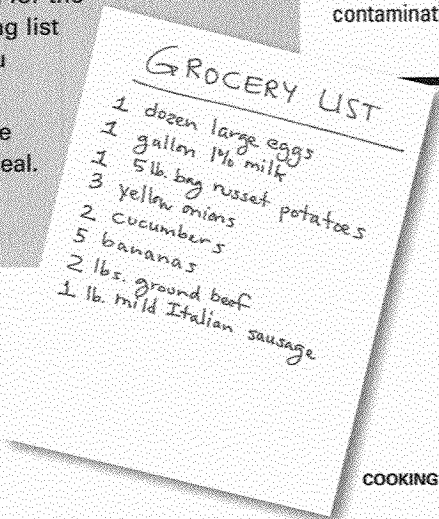 for the
ng list
u
e
eal.
contaminat
GROCERY LIST
1 dozen large eggs
1 gallon 1% milk
1 5 lb. bag russet potatoes
3 yellow onions
2 cucumbers
5 bananas
2 lbs. ground beef
1 lb. mild Italian sausage
COOKING